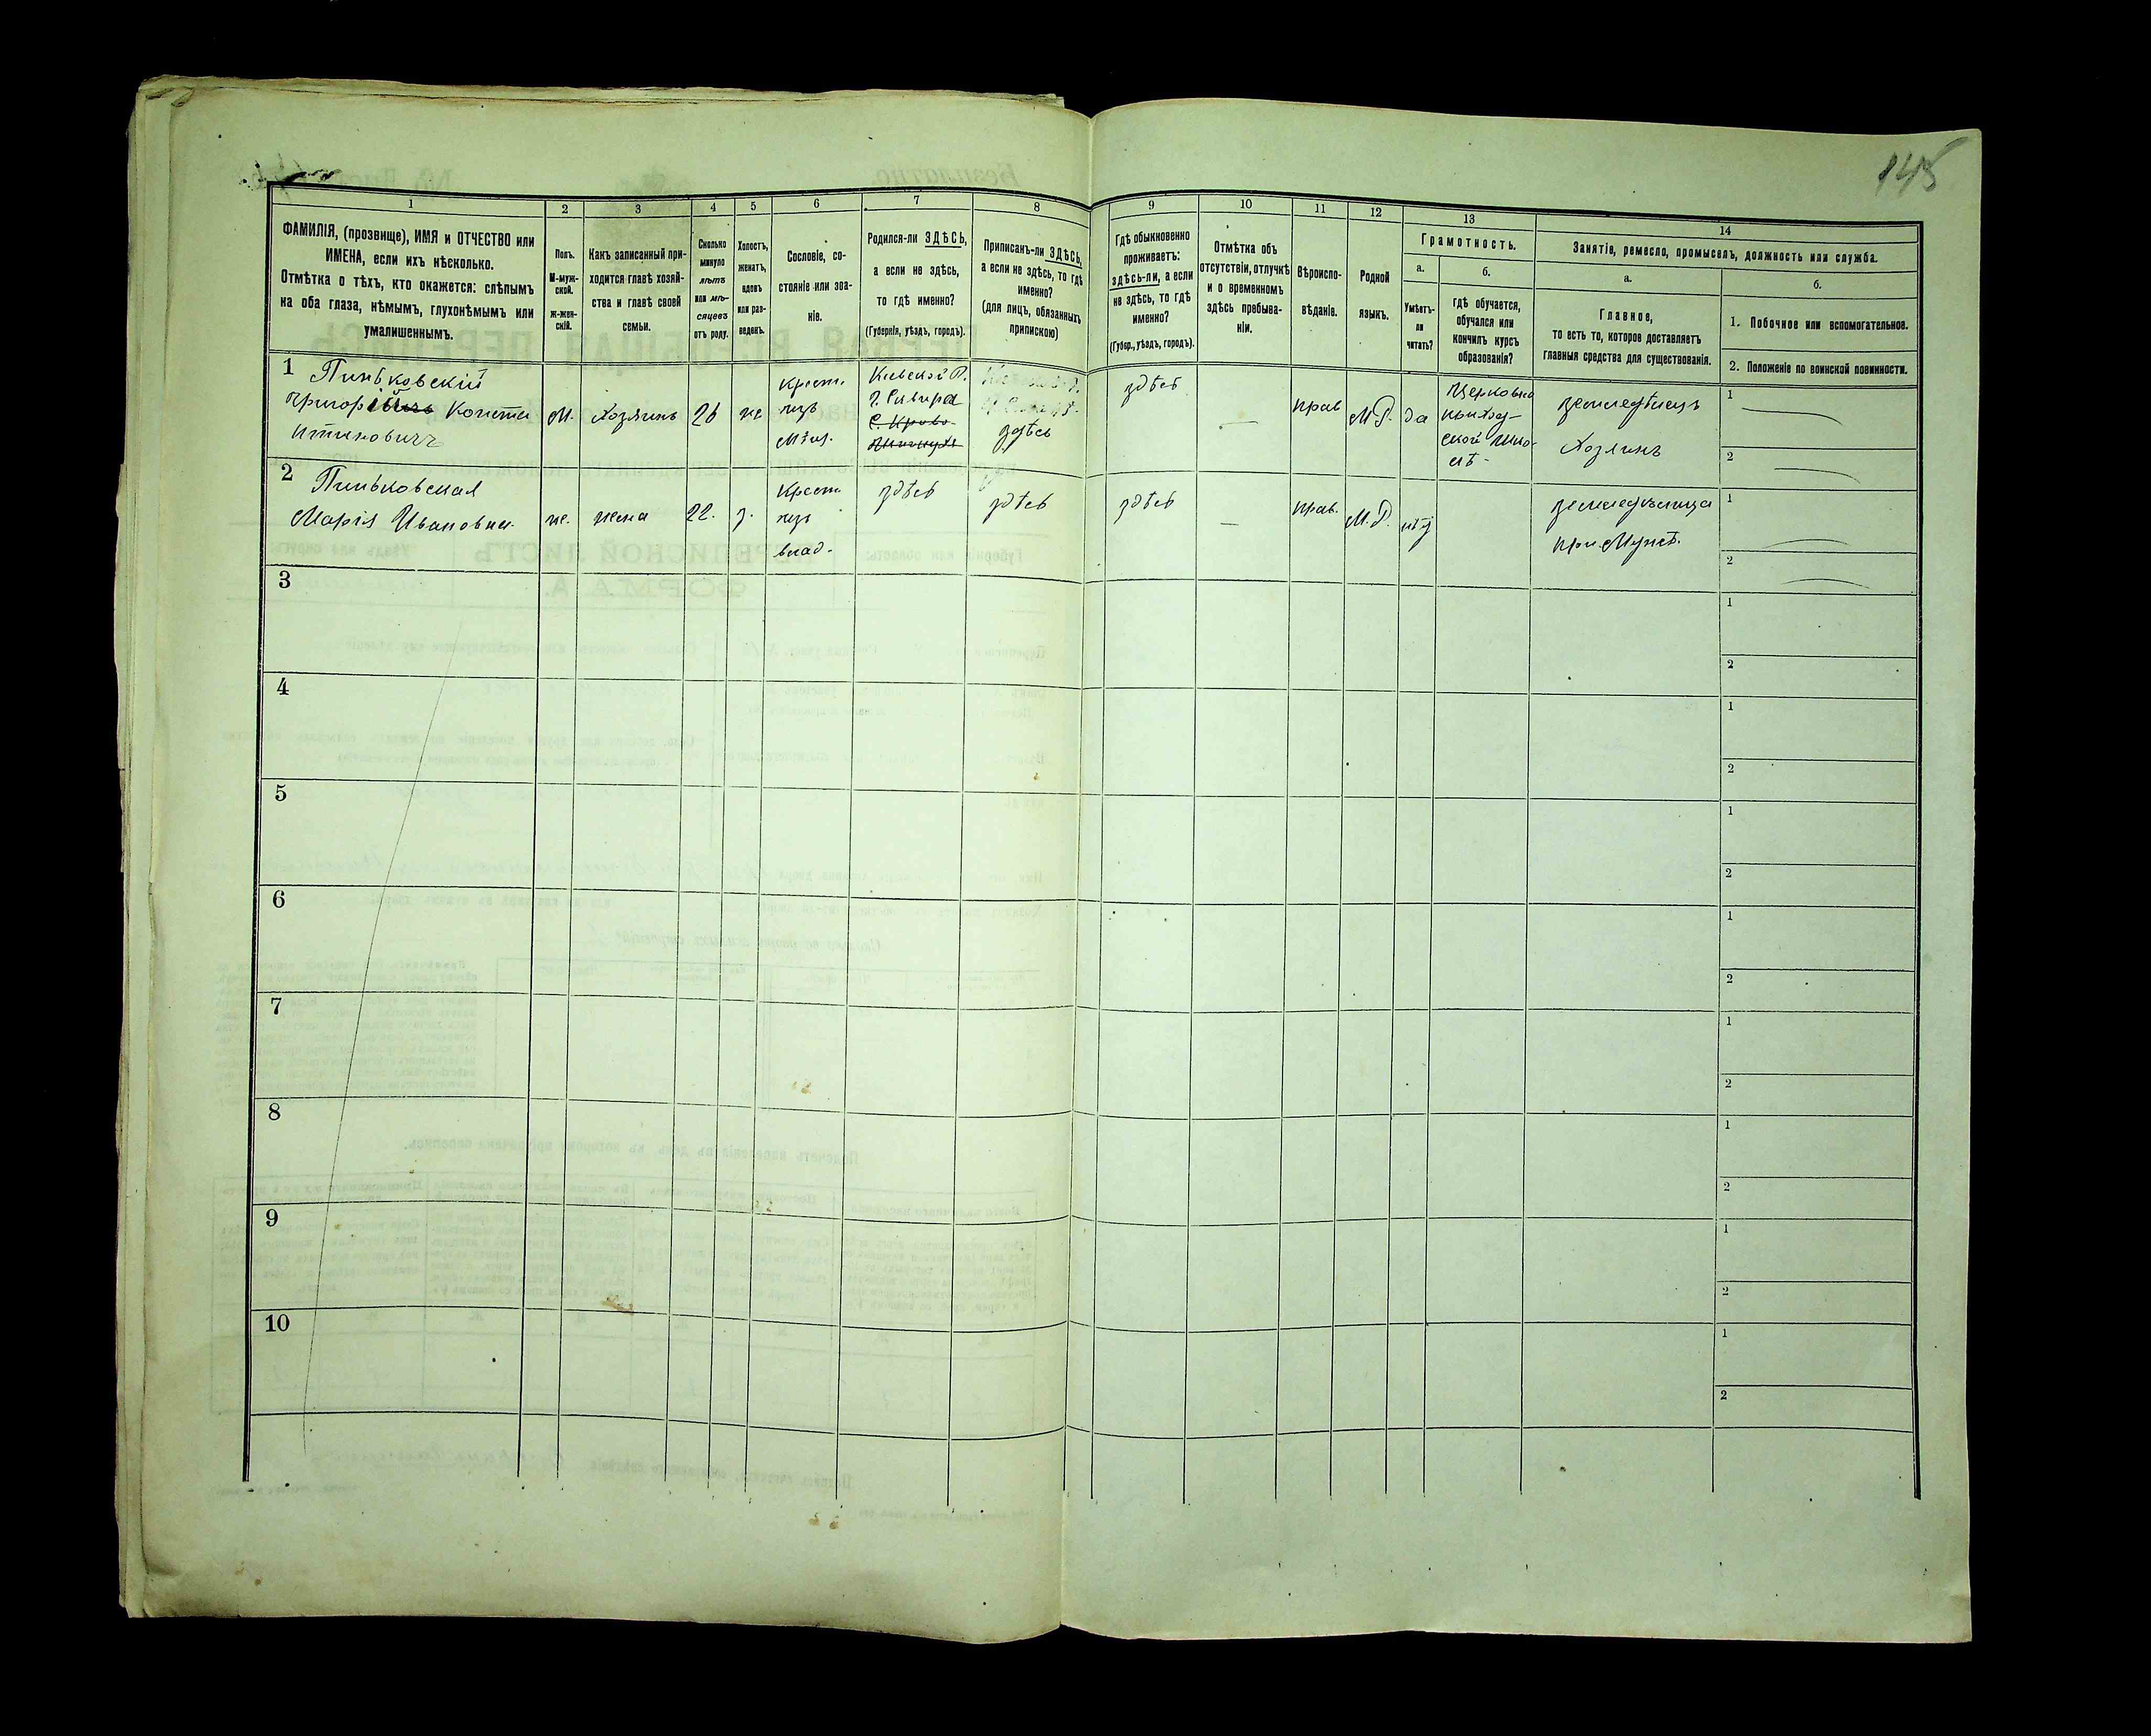 145
1
2
3
4
5
6
7
8
9
10
11
12
13
14
ФАМИЛІЯ, (прозвище), ИМЯ и ОТЧЕСТВО или
ИМЕНА, если ихъ нѣсколько.
Отмѣтка о тѣхъ, кто окажется: слѣпымъ
на оба глаза, нѣмымъ, глухонѣмымъ или
умалишеннымъ.
Полъ.
М-муж-
ской.
ж-жен-
скій.
Какъ записанный при-
ходится главѣ хозяй-
ства и главѣ своей
семьи.
Сколько
минуло
лѣтъ
или мѣ-
сяцевъ
отъ роду.
Холостъ,
женатъ,
вдовъ
или раз-
веденъ.
Сословіе, со-
стояніе или зва-
ніе.
Родился-ли ЗДѢСЬ,
а если не здѣсь,
то гдѣ именно?
(Губернія, уѣздъ, городъ).
Приписанъ-ли ЗДѢСЬ,
а если не здѣсь, то гдѣ
именно?
(для лицъ, обязанныхъ
припискою)
Гдѣ обыкновенно
проживаетъ:
здѣсь-ли, а если
не здѣсь, то гдѣ
именно?
(Губер., уѣздъ, городъ).
Отмѣтка объ
отсутствіи, отлучкѣ
и о временномъ
здѣсь пребыва-
ніи.
Вѣроиспо-
вѣданіе.
Родной
языкъ.
Грамотность.
а.
Умѣетъ-
ли
читать?
б.
гдѣ обучается,
обучался или
кончилъ курсъ
образованія?
Занятіе, ремесло, промыселъ, должность или служба.
а.
Главное,
то есть то, которое доставляетъ
главныя средства для существованія.
б.
1. Побочное или вспомогательное.
2. Положеніе по воинской повинности.
1
Пиньковскій
Григорій Конста
нтиновичъ
М.
Хозяинъ
26
ж
Крест.
изъ
Кіевской Г.
г. Сквира
здѣсь
здѣсь
—
прав
М.Р.
да
Церковно
приход-
ской шко-
лѣ-
земледѣлецъ
Хозяинъ
1
2
2
Пиньковская
Марія Ивановна.
ж.
жена
22.
з.
Крест.
изъ
влад.
здѣсь
здѣсь
здѣсь
—
прав.
М.Р.
нѣт
земледѣлица
при Мужѣ.
1
2
3
1
2
4
1
2
5
1
2
6
1
2
7
1
2
8
1
2
9
1
2
10
1
2